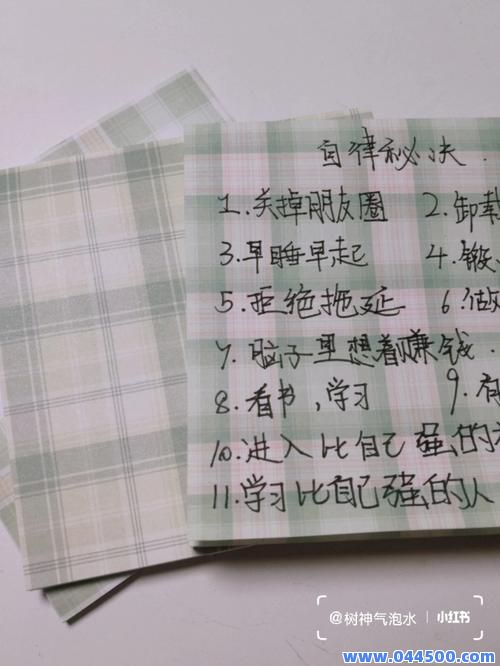 自律秘决
1.关掉朋友圈 2.卸载
3.早睡早起 4.锻
5.拒绝拖延 6.做
7.脑子里想着赚钱.
8.看书,学习 9.有
10.进入比自己强的
11.学习比自己强的人
@树神气泡水 小红书
www.044500.com